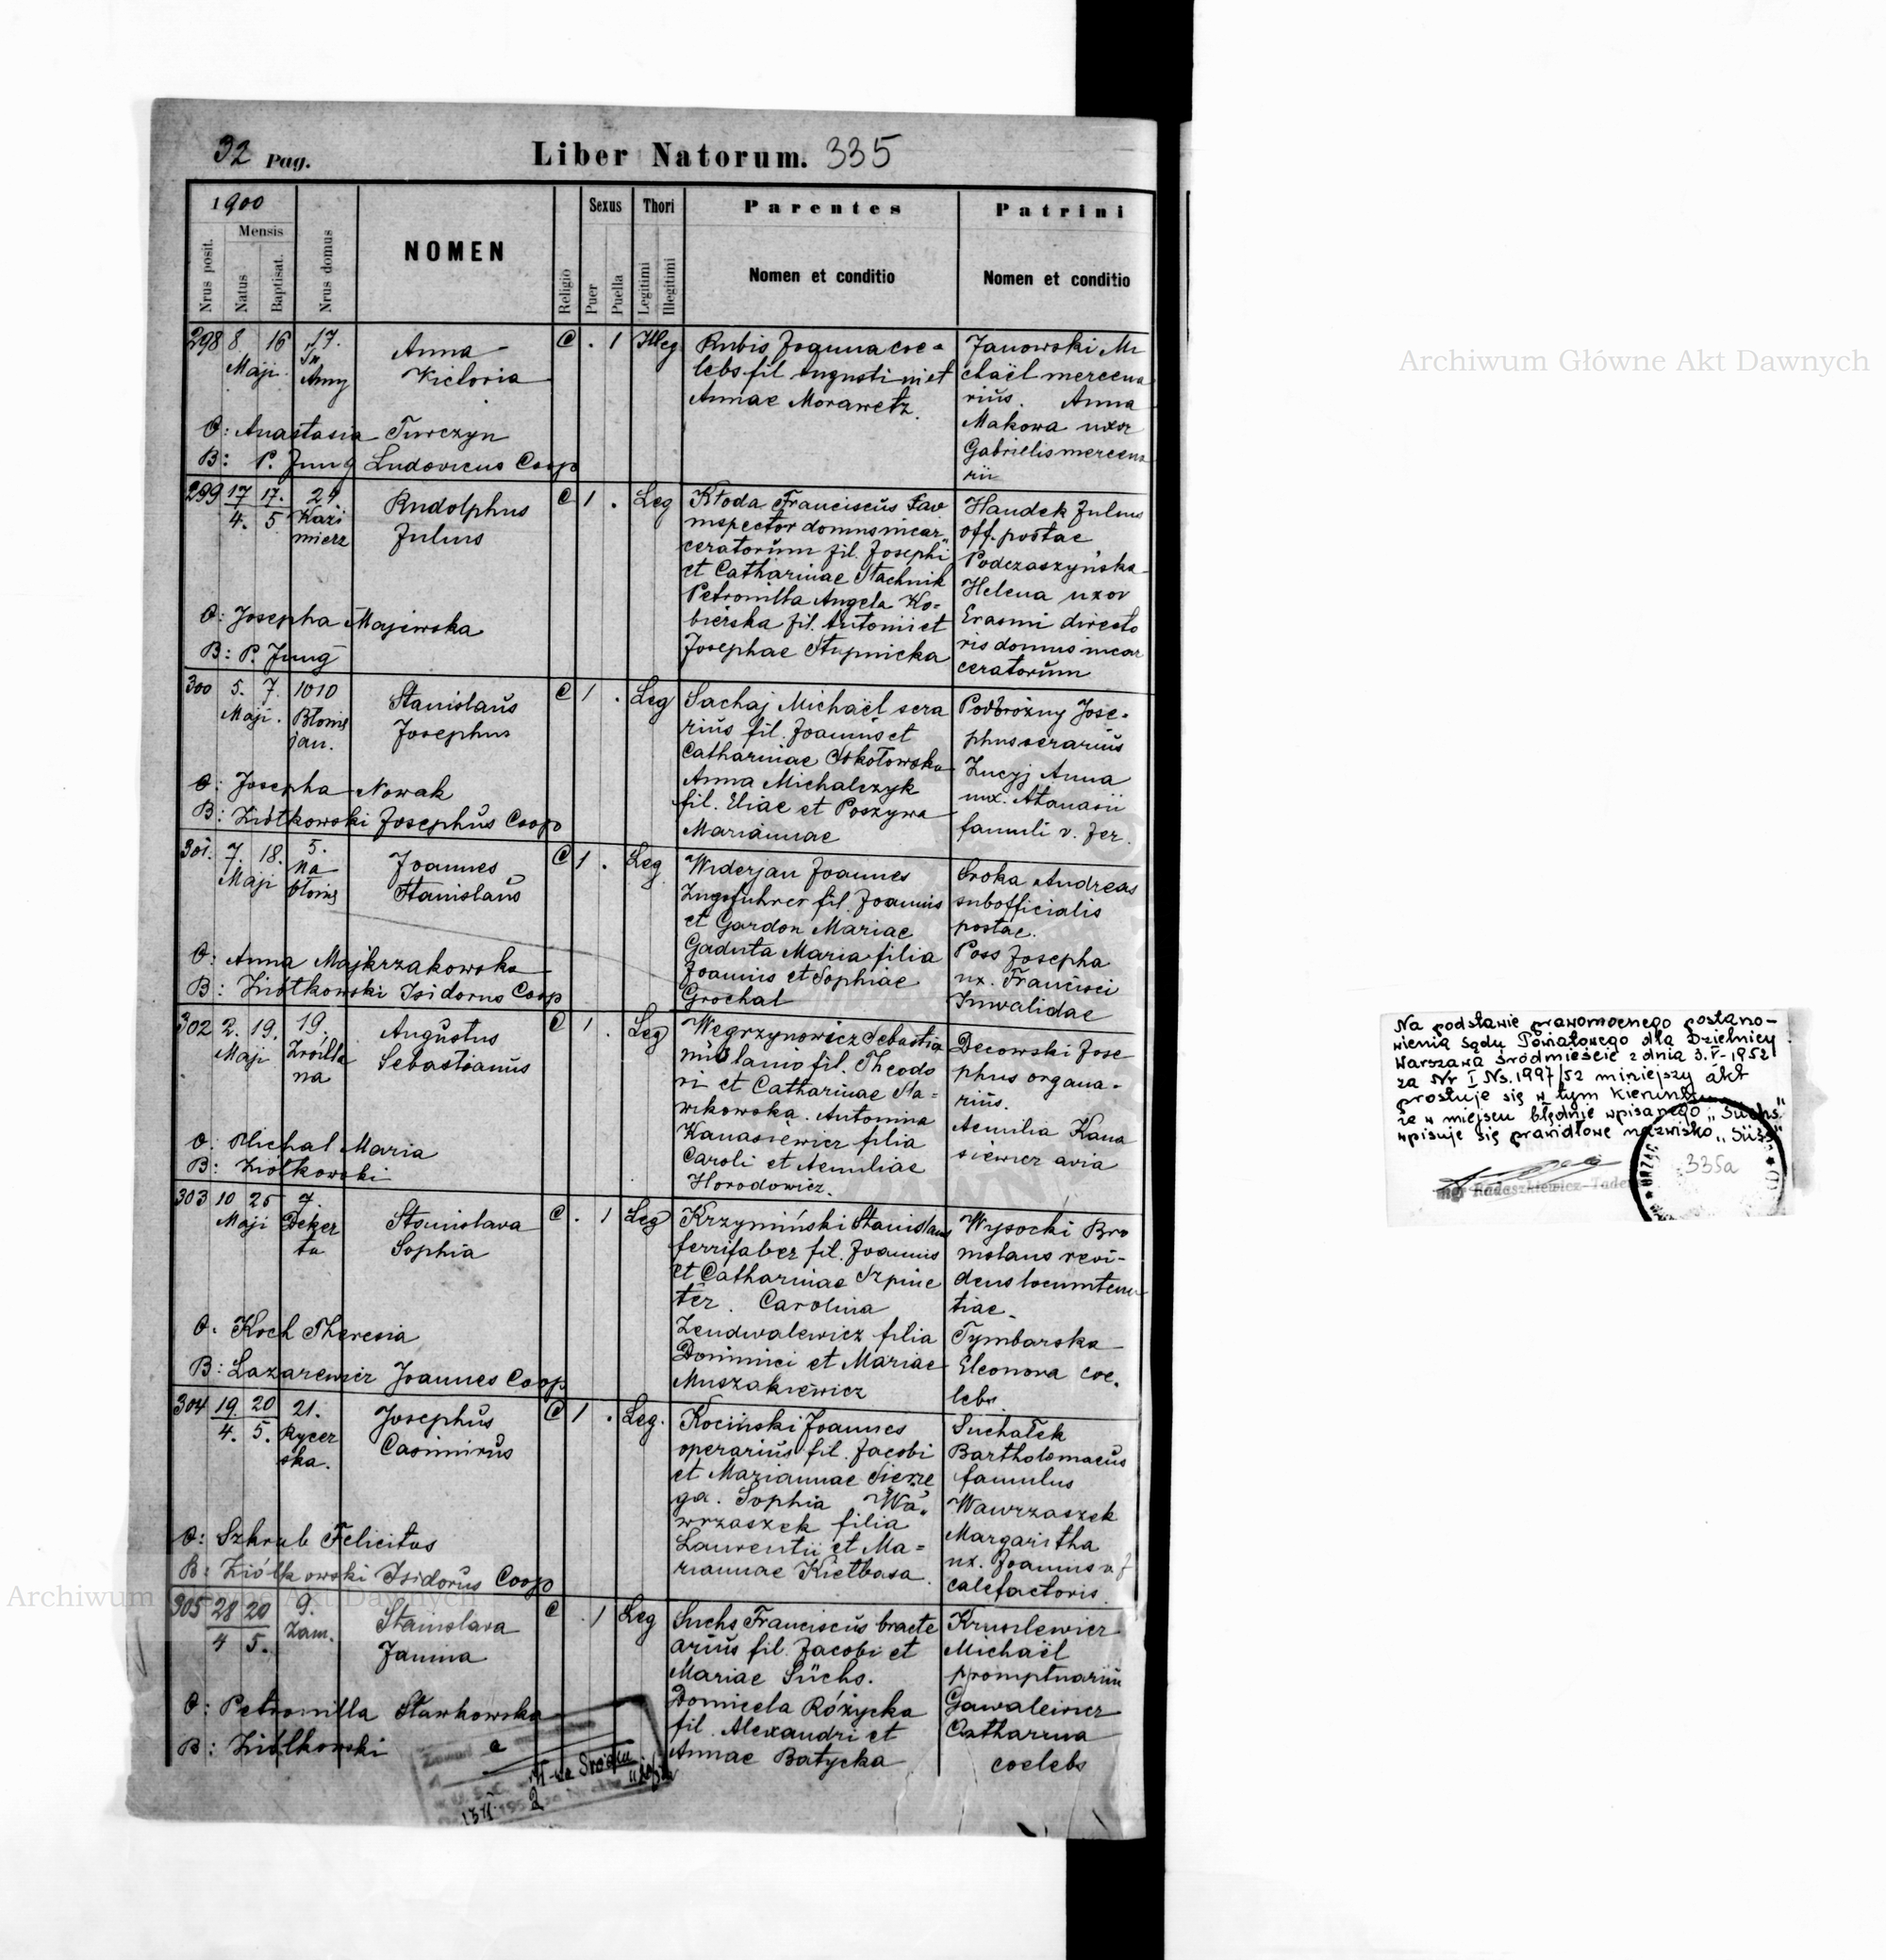 32 Pag. Liber Natorum. 335
1900
Mensis
Nrus posit.
Natus
Baptisat.
Nrus domus
NOMEN
Religio
Sexus
Puer
Puella
Thori
Legitimi
Illegitimi
Parentes
Nomen et conditio
Patrini
Nomen et conditio
298 8 16 17.
Maji Anny
Anna
Victoria
C . 1 Illeg
Rubis Joanna coe=
lebs fil Augustini et
Annae Morawetz.
Janowski Mi
chaël mercena
rius. Anna
Makowa uxor
Gabrielis mercena
rii
O: Anastasia Turczyn
B: P. Jung Ludovicus Coop
299 17 17. 24
4. 5 Kazi
mierz
Rudolphus
Julius
C 1 . Leg
Kłoda Franciscus
inspector domus incar=
ceratorum fil. Josephi
et Catharinae Stachnik
Petronilla Angela Ko=
bierska fil. Antonii et
Josephae Stupnicka
Handek Julius
off. postae
Podczaszyńska
Helena uxor
Erasmi directo
ris domus incar
ceratorum
O: Josepha Majewska
B: P. Jung
300 5. 7. 1010
Maji. Błonie
jan.
Stanislaus
Josephus
C 1 . Leg
Sachaj Michaël sera
rius fil. Joannis et
Catharinae Sokołowska
Anna Michalczyk
fil. Eliae et Poszywa
Mariannae
Podbrożny Jose=
phus serarius
Anna
ux. Atanasii
famuli v. fer.
O: Josepha Nowak
B: Ziółkowski Josephus Coop
301. 7. 18. 5.
Maji Na
błonie
Joannes
Stanislaus
C 1 . Leg
Widerjan Joannes
Zugsfuhrer fil. Joannis
et Gardon Mariae
Gaduta Maria filia
Joannis et Sophiae
Grochal
Sroka Andreas
subofficialis
postae.
Poss Josepha
ux. Francisci
Invalidae
O: Anna Majkrzakowska
B: Ziółkowski Isidorus Coop
302 2. 19. 19.
Maji Źródla
na
Augustus
Sebastianus
C 1 . Leg
Węgrzynowicz Sebastia
nus lanio fil. Theodo
ri et Catharinae Sta=
wikowska. Antonina
Kanasiewicz filia
Caroli et Aemiliae
Horodowicz.
Decowski Jose
phus organa=
rius.
Aemilia Kana
siewicz avia
O: Michal Maria
B: Ziółkowski
303 10 26 7.
Maji Deker
ta
Stanislava
Sophia
C . 1 Leg
Krzymiński Stanislaus
ferrifaber fil. Joannis
et Catharinae Szpine
ter. Carolina
Zendwalewicz filia
Dominici et Mariae
Muszakiewicz
Wysocki Bro
nislaus revi-
dens locumtenen
tiae.
Tymbarska
Eleonora coe.
lebs.
O. Koch Theresia
B: Lazarewicz Joannes Coop.
304 19. 20 21.
4. 5. Rycer
ska.
Josephus
Casimirus
C 1 . Leg.
Kociński Joannes
operarius fil. Jacobi
et Mariannae Sierze
ga. Sophia Wa=
wrzaszek filia
Laurentii et Ma=
riannae Kiełbasa.
Suchałek
Bartholomaeus
famulus
Wawrzaszek
Margaritha
ux. Joannis v. f
calefactoris.
O: Szkrab Felicitas
B: Ziółkowski Isidorus Coop
305 28 20 9.
4 5. Zam.
Stanislava
Janina
C . 1 Leg
Suchs Franciscus bracte
arius fil. Jacobi et
Mariae Süchs.
Domicela Różycka
fil. Alexandri et
Annae Batycka
Kruszlewicz
Michaël
promptuarius
Gawalewicz
Catharina
coelebs
O: Petronilla Sławkowska
B: Ziółkowski
Archiwum Główne Akt Dawnych
Na podstawie prawomocnego postano-
wienia Sądu Powiatowego dla Dzielnicy
Warszawa Śródmieście z dnia 3.V-1952
za Nr I Ns. 1997/52 niniejszy akt
prostuje się w tym kierunku
że w miejscu błędnie wpisanego „Suchs"
wpisuje się prawidłowe nazwisko „Süss"
mgr Radaszkiewicz-Tade
URZĄD
335a
Archiwum Główne Akt Dawnych